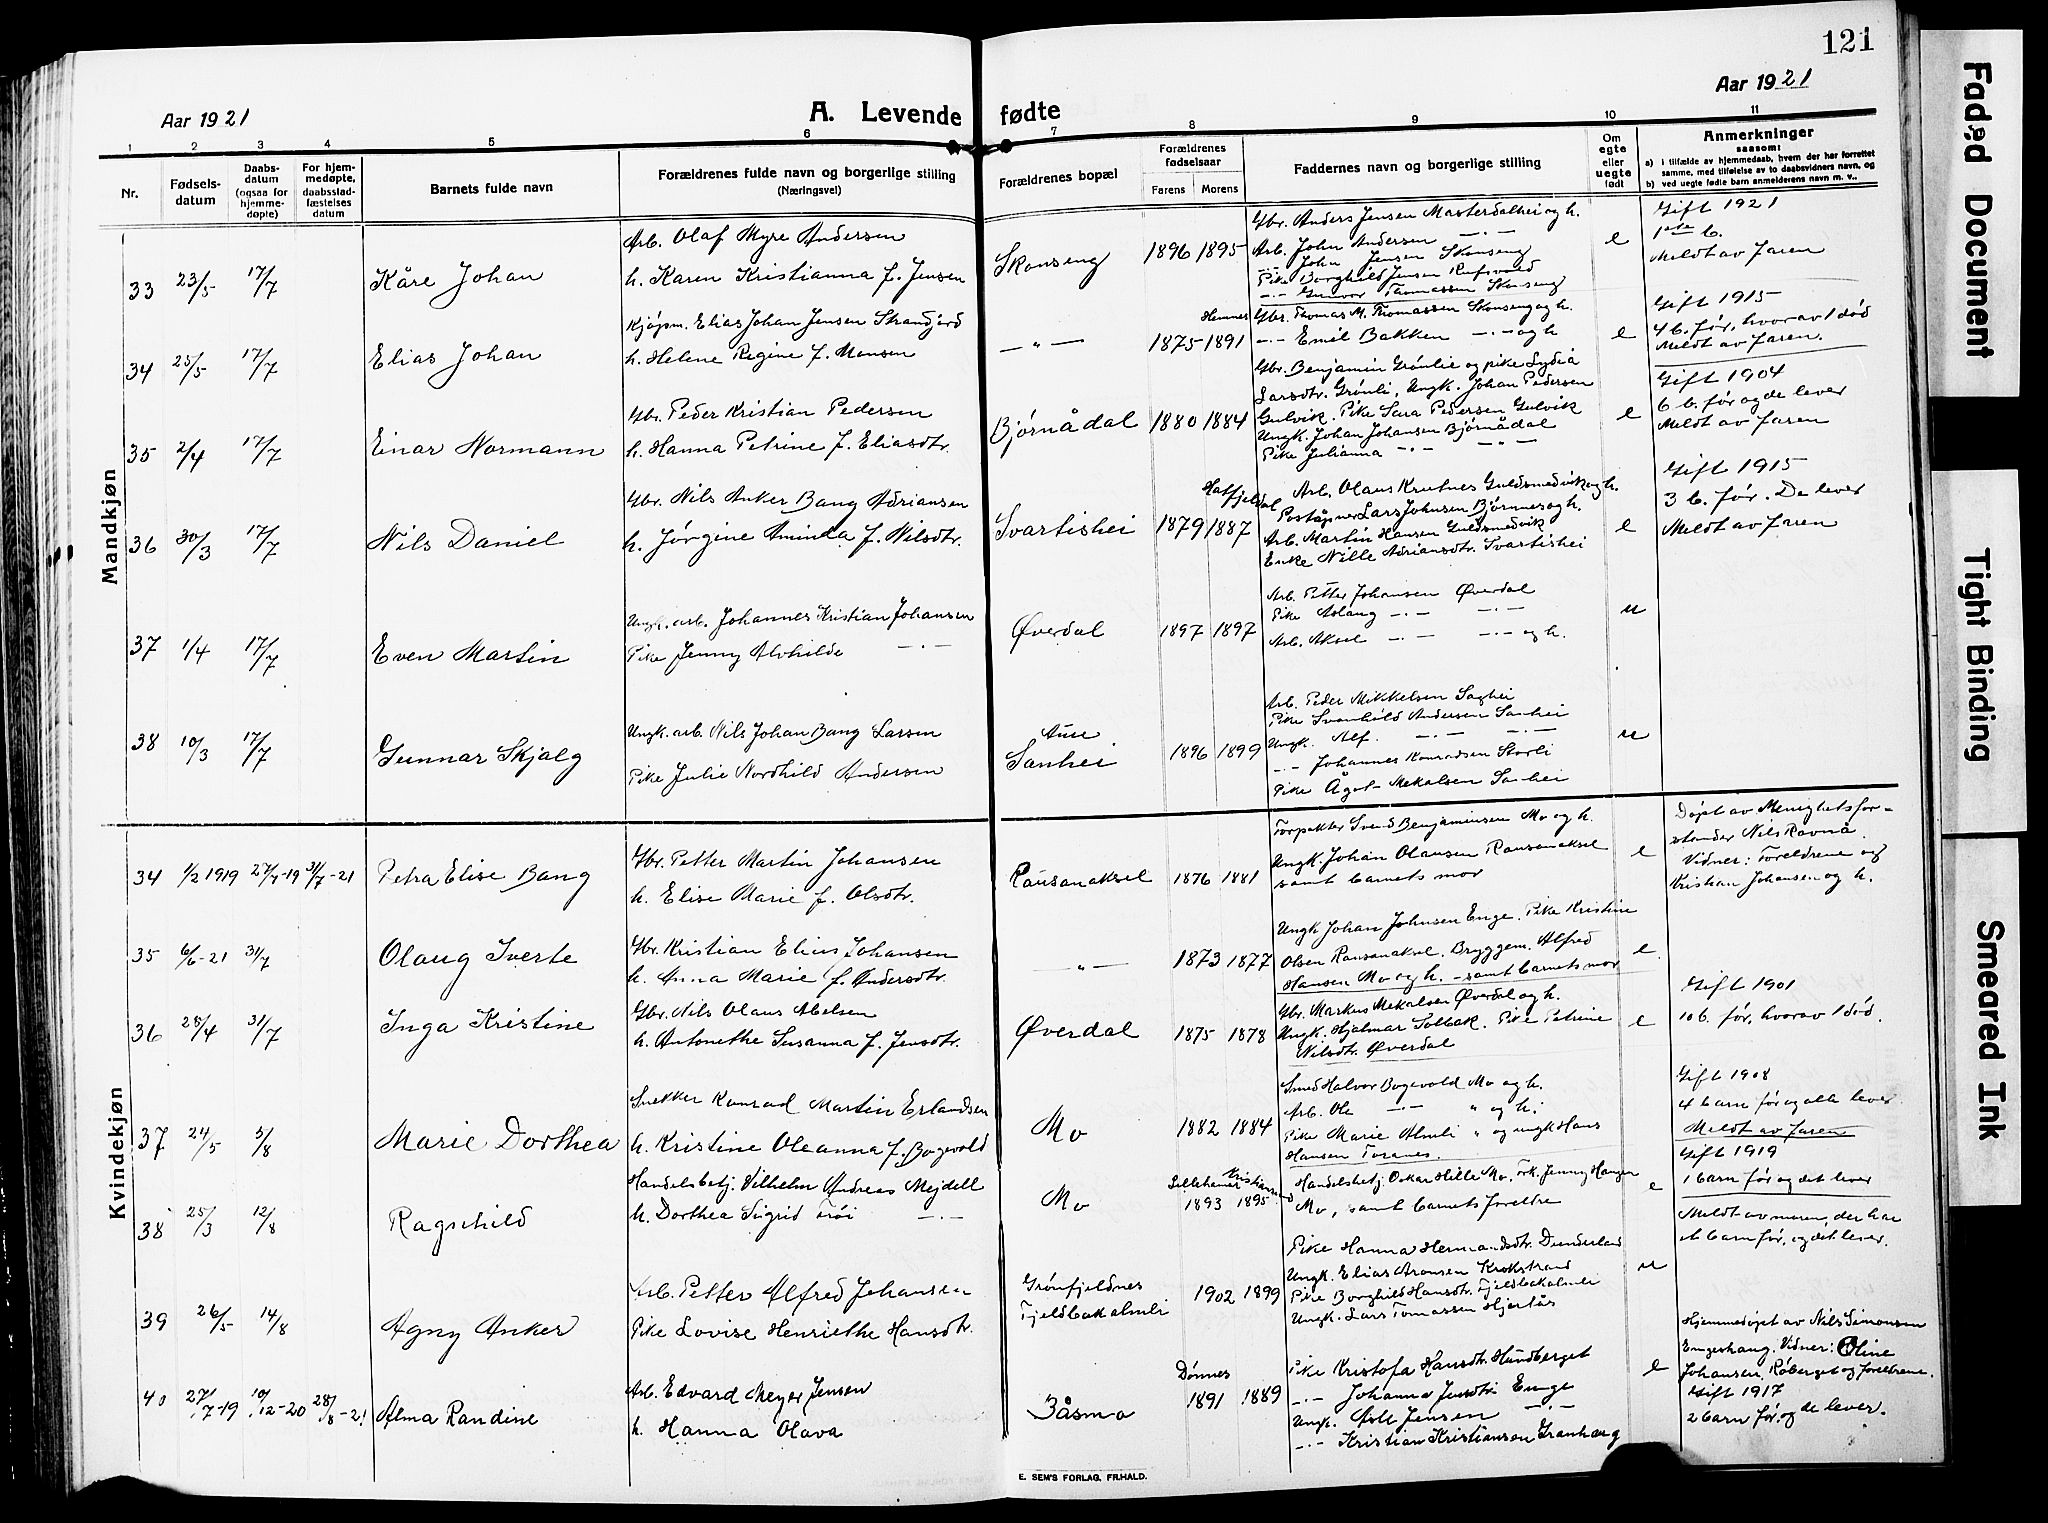 121
Aar 1921
A. Levende fødte
Aar 1921
1 2 3 4 5 6 7 8 9 10 11
Nr.
Fødsels-
datum
Daabs-
datum
(ogsaa for
hjemme-
døpte)
For hjem-
medøpte,
daabsstad-
fæstelses
datum
Barnets fulde navn
Forældrenes fulde navn og borgerlige stilling
(Næringsvei)
Forældrenes bopæl
Forældrenes
fødselsaar
Farens Morens
Faddernes navn og borgerlige stilling
Om
egte
eller
uegte
født
Anmerkninger
saasom:
a) i tilfælde av hjemmedaab, hvem der har forrettet
samme, med tilføielse av to daabsvidners navn, og
b) ved uegte fødte barn anmelderens navn m. v.,
Mandkjøn
33 23/5 17/7 Kåre Johan
Arb. Olaf Myre Andersen
h. Karen Kristianna f. Jensen
Skonseng 1896 1895
Gbr. Anders Jensen Masterdalhei og h.
Arb. John Andersen —·—
John Jensen Skonseng
Pike Borghild Jensen Rufsvold
—·— Gunvor Thomassen Skonseng
e
Gift 1921
1ste b.
Meldt av faren
34 25/5 17/7 Elias Johan
Kjøpm. Elias Johan Jensen Strandjord
h. Helene Regine f. Monsen
— „ — 1875 Hemnes 1891
Gbr. Thomas M. Thomassen Skonseng og h.
—·— Emil Bakken —·— og h
e
Gift 1915
4 b. før, hvorav 1 død
Meldt av faren.
35 2/4 17/7 Einar Normann
Gbr. Peder Kristian Pedersen
h. Hanna Petrine f. Eliasdtr.
Bjørnådal 1880 1884
Gbr. Benjamin Grønlie og pike Lydia
Larsdtr. Grønli, Ungk. Johan Pedersen
Gulvik. Pike Sara Pedersen Gulvik
Ungk. Johan Johansen Bjørnådal
Pike Julianna —·— —·—
e
Gift 1904
6 b. før og de lever
Meldt av faren
36 30/3 17/7 Nils Daniel
Gbr. Nils Anker Bang Adriansen
h. Jørgine Aminda f. Nilsdtr.
Svartishei 1879 Hatfjeldal 1887
Arb. Olaus Knutnes Guldsmedvik og h.
Poståpner Lars Johnsen Bjørnnes og h.
Arb. Martin Hansen Guldsmedvik
Enke Nille Adriansdtr. Svartishei
e
Gift 1915
3 b. før. De lever
Meldt av faren
37 1/4 17/7 Even Martin
Ungk. arb. Johannes Kristian Johansen
Pike Jenny Alvhilde —·—
Øverdal 1897 1897
Arb. Petter Johansen Øverdal
Pike Aslaug —·— —·—
Arb. Aksel —·— —·— og h.
u
38 10/3 17/7 Gunnar Skjalg
Ungk. arb. Nils Johan Bang Larsen
Pike Julie Nordhild Andersen
Aune
Sanhei 1896 1899
Arb. Peder Mikkelsen Saghei
Pike Svanhild Andersen Sanhei
Ungk. Alf. —·— —·—
—·— Johannes Konradsen Storli
Pike Ågot Mekalsen Sanhei
u
Kvindekjøn
34 1/2 1919 27/7-19 31/7-21 Petra Elise Bang
Gbr. Petter Martin Johansen
h. Elise Marie f. Olsdtr.
Rausanaksel 1876 1881
Forpakter Svend Benjaminsen Mo og h.
Ungk. Johan Olausen Rausanaksel
samt barnets mor
e
Døpt av Menighetsfor-
stander Nils Ravnå.
Vidner: Foreldrene og
Kristian Johansen og h.
35 6/6-21 31/7 Olaug Sverte
Gbr. Kristian Elius Johansen
h. Anna Marie f. Andersdtr.
— „ — 1873 1877
Ungk Johan Johnsen Enge. Pike Kristine
Olsen Rausanaksel, Bryggem. Alfred
Hansen Mo og h. - samt barnets mor
e.
36 28/4 31/7 Inga Kristine
Gbr. Nils Olaus Abelsen
h. Antonethe Susanna f. Jensdtr.
Øverdal 1875 1878
Gbr. Markus Mekalsen Øverdal og h.
Ungk. Hjalmar Solbak. Pike Petrine
Nilsdtr. Øverdal
e
Gift 1901
10 b. før, hvorav 1 død.
37 24/5 5/8 Marie Dorthea
Snekker Konrad Martin Erlandsen
h. Kristine Oleanna f. Bogevold
Mo 1882 1884
Smed Halvor Bogevold Mo og h.
Arb. Ole —·— „ og h.
Pike Marie Almli „ og ungk Hans
Hansen Toranes.
Gift 1908
4 barn før og alle lever
Meldt av faren
38 25/3 12/8 Ragnhild
Handelsbetj. Vilhelm Andreas Mejdell
h. Dorthea Sigrid Trøi —·—
Mo Lillehamer 1893 Kristiansund 1895
Handelsbetj. Oskar Hille Mo. Frk. Jenny Haugen
Mo, samt barnets foreldre
e
Gift 1919
1 barn før og det lever
39 26/5 14/8 Agny Anker
Arb. Petter Alfred Johansen
Pike Lovise Henriethe Hansdtr.
Grønfjeldnes
Fjeldbakalmli 1902 1899
Pike Hanna Hermansdtr. Dunderland
Ungk. Elias Aronsen Krokstrand
Pike Borghild Hansdtr. Fjeldbakalmli
Ungk. Lars Tomassen Hjertås
u
Meldt av moren, der har
et barn før, og det lever.
40 27/7-19 10/12-20 28/8-21 Alma Randine
Arb. Edvard Meyer Jensen
h. Hanna Olava
Båsmo Dønnes 1891 1889
Pike Kristofa Hansdtr. Hundberget
—·— Johanna Jensdtr Enge
Ungk. Øle Jensen —·—
—·— Kristian Kristiansen Granhaug
e
Hjemmedøpt av Nils Simonsen
Engeshaug. Vidner: Oline
Johansen, Røberget og foreldrene.
Gift 1917
2 barn før, og de lever.
E. SEM'S FORLAG, FR.HALD.
Faded Document
Tight Binding
Smeared Ink